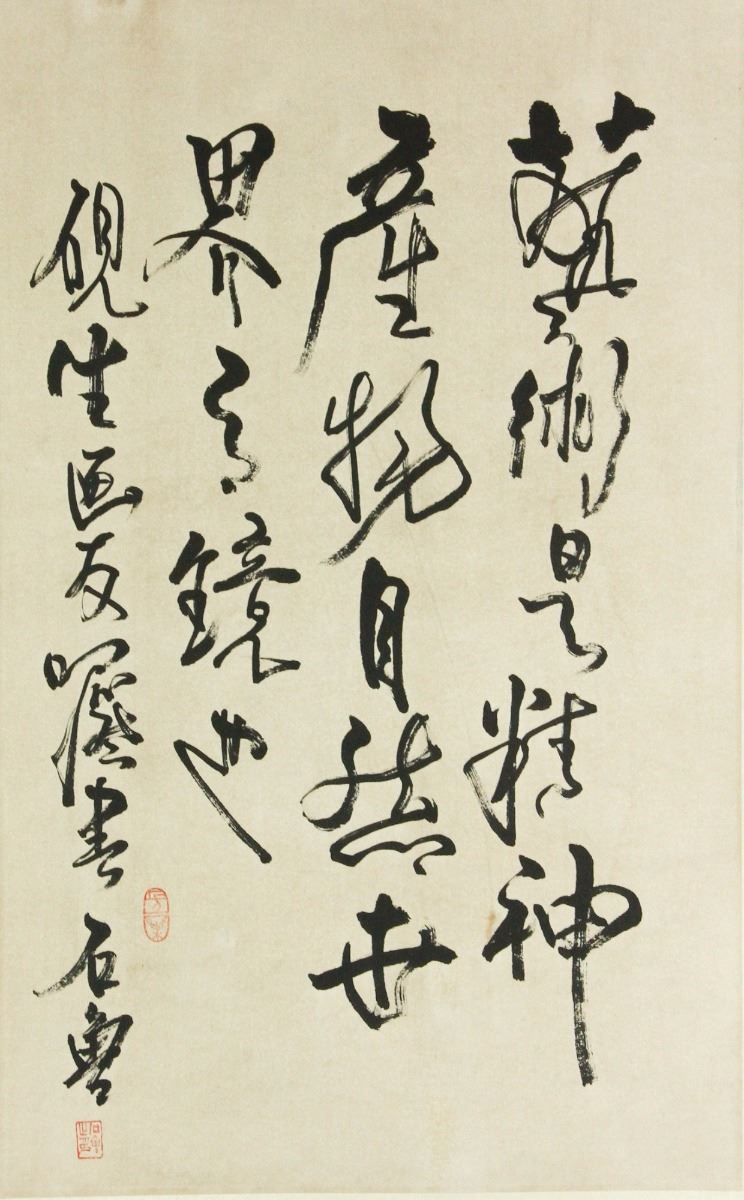 藝術是精神
產物自然世
界之鏡也
砚生画友嘱書 石魯